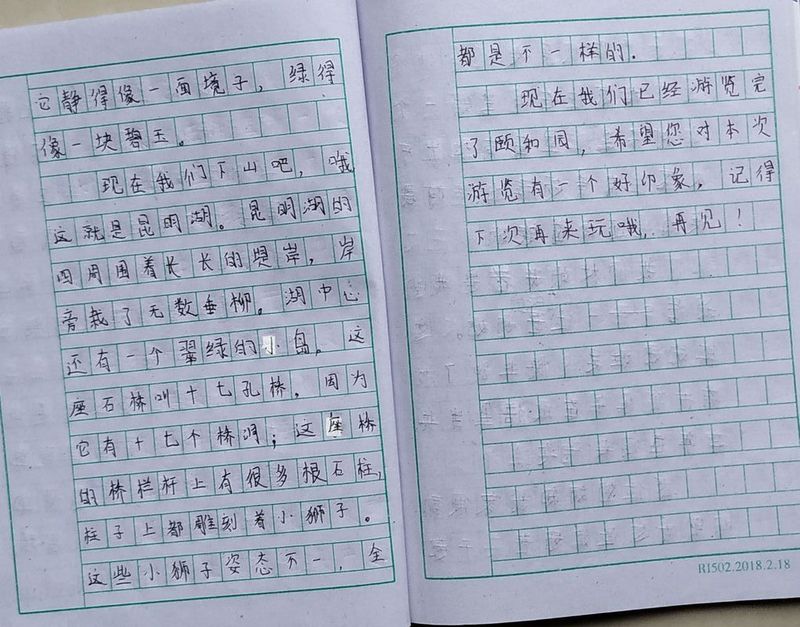 它静得像一面境子，绿得
像一块碧玉。
现在我们下山吧，哦
这就是昆明湖。昆明湖的
四周围着长长的堤岸，岸
旁栽了无数垂柳。湖中心
还有一个翠绿的小岛。这
座石桥叫十七孔桥，因为
它有十七个桥洞；这座桥
的桥栏杆上有很多根石柱，
柱子上都雕刻着小狮子。
这些小狮子姿态不一，全
都是不一样的.
现在我们已经游览完
了颐和园，希望您对本次
游览有一个好印象，记得
下次再来玩哦，再见！
RI502.2018.2.18